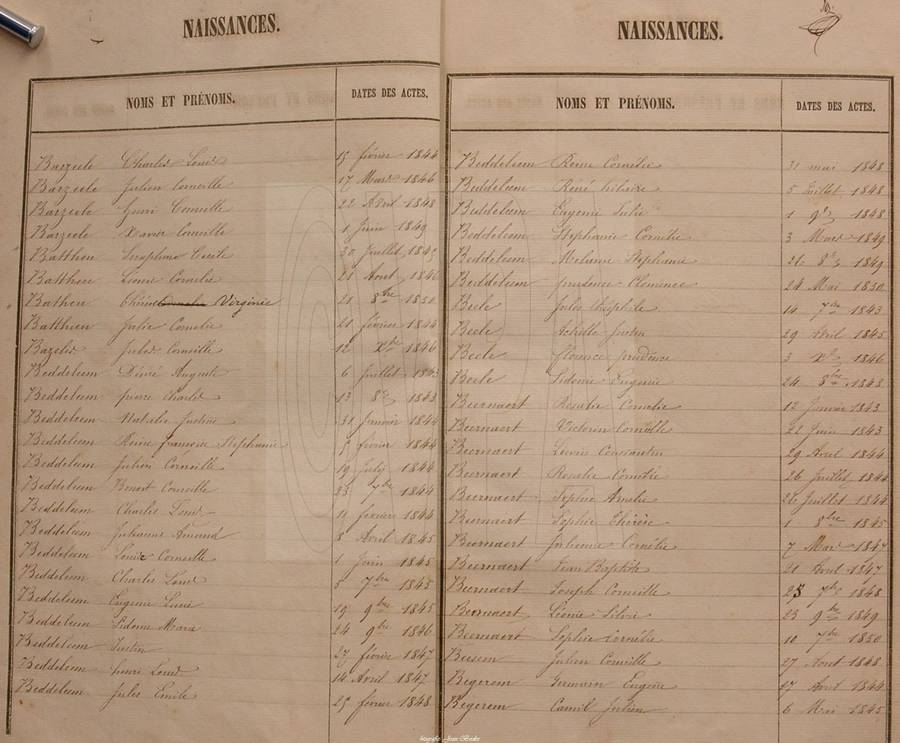 NAISSANCES.
NOMS ET PRÉNOMS. DATES DES ACTES.
Barzeele Charles Louis 15 février 1844
Barzeele Julien Corneille 17 Mars 1846
Barzeele Henri Corneille 22 Avril 1848
Barzeele Xavier Corneille 1 Juin 1849
Battheu Séraphine Cécile 30 Juillet
Battheu Léonie Cornelie 21 Aout 1846
Batheu Virginie 21 8bre 1850
Batthieu Julie Cornelie 21 février 1844
Jules Corneille 12 Xbre 1846
Beddeleem Désiré Auguste 6 Juillet 1843
Beddeleem pierre Charles 13 1843
Beddeleem Nathalie Justine 31 Janvier 1844
Beddeleem Reine françoise Stephanie 5 février 1844
Beddeleem Julien Corneille 19 1844
Beddeleem Benoit Corneille 23 7bre 1844
Beddeleem Charles Louis 11 février 1844
Beddeleem Amand 8 Avril 1845
Beddeleem Louis Corneille 1 Juin 1845
Beddeleem Charles Louis 5 7bre 1845
Beddeleem Eugenie 19 9bre 1845
Beddeleem Sidonie Marie 24 9bre 1846
Beddeleem Justin 27 février 1847
Beddeleem henri Louis 14 Avril 1847
Beddeleem Jules Emile 25 février 1848
NAISSANCES.
NOMS ET PRÉNOMS. DATES DES ACTES.
Beddeleem Reine Cornélie 31 mai 1848
Beddeleem Réné hilaire 5 Juillet 1848
Beddeleem Eugenie Julie 1 9bre 1848
Beddeleem Stephanie Cornélie 3 Mars 1849
Beddeleem Melanie Stephanie 26 1849
Beddeleem prudence Clemence 24 Mai 1850
Beele Jules théophile 14 7bre 1843
Beele Achille Justin 29 Avril 1845
Beele florence prudence 3 Xbre 1846
Beele Sidonie Eugenie 24 8bre 1848
Beernaert Rosalie Cornelie 12 Janvier 1843
Beernaert Victorin Corneille 22 Juin 1843
Beernaert Constantin 29 Avril 1844
Beernaert Rosalie Cornélie 26 Juillet 1844
Beernaert Sophie Amelie 26 Juillet 1844
Beernaert Sophie Thérèse 1 8bre 1845
Beernaert Cornélie 7 Mars 1847
Beernaert Jean Baptiste 21 Avril 1847
Beernaert Joseph Corneille 23 7bre 1848
Beernaert Léonie Silvie 23 9bre 1849
Beernaert Sophie Cornélie 10 7bre 1850
Julien Corneille 27 Aout 1848
Begerem Germain Eugène 27 Avril 1844
Begerem Camil Julien 6 Mai 1845